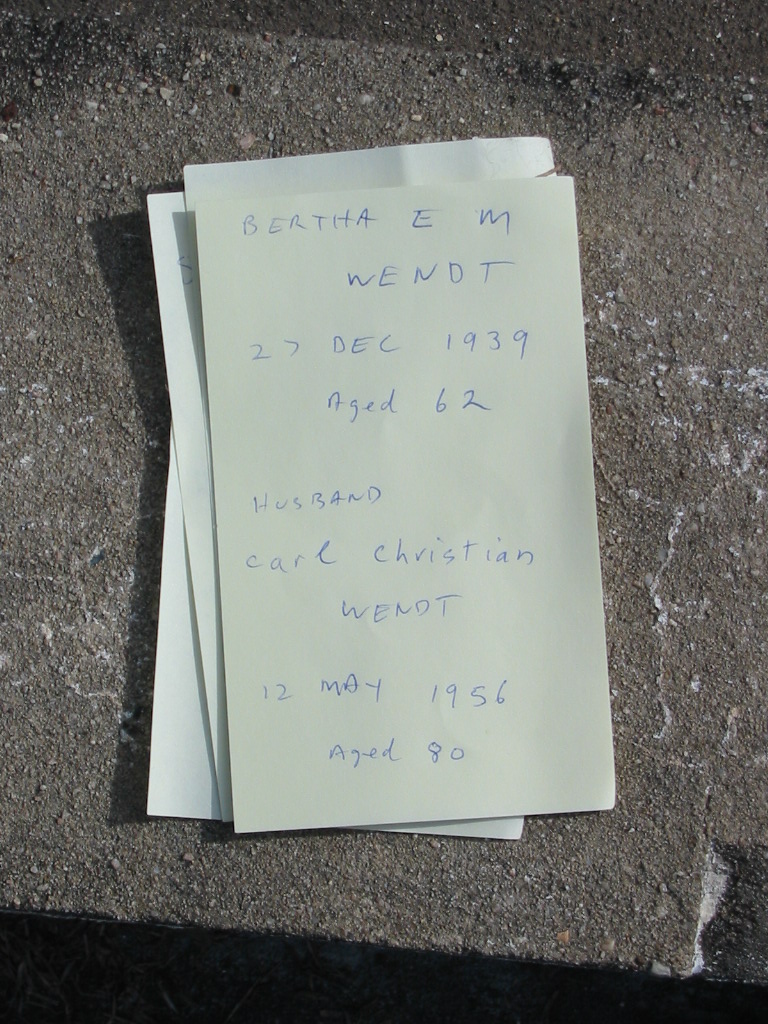 BERTHA E M
WENDT
27 DEC 1939
Aged 62
HUSBAND
Carl Christian
WENDT
12 MAY 1956
Aged 80